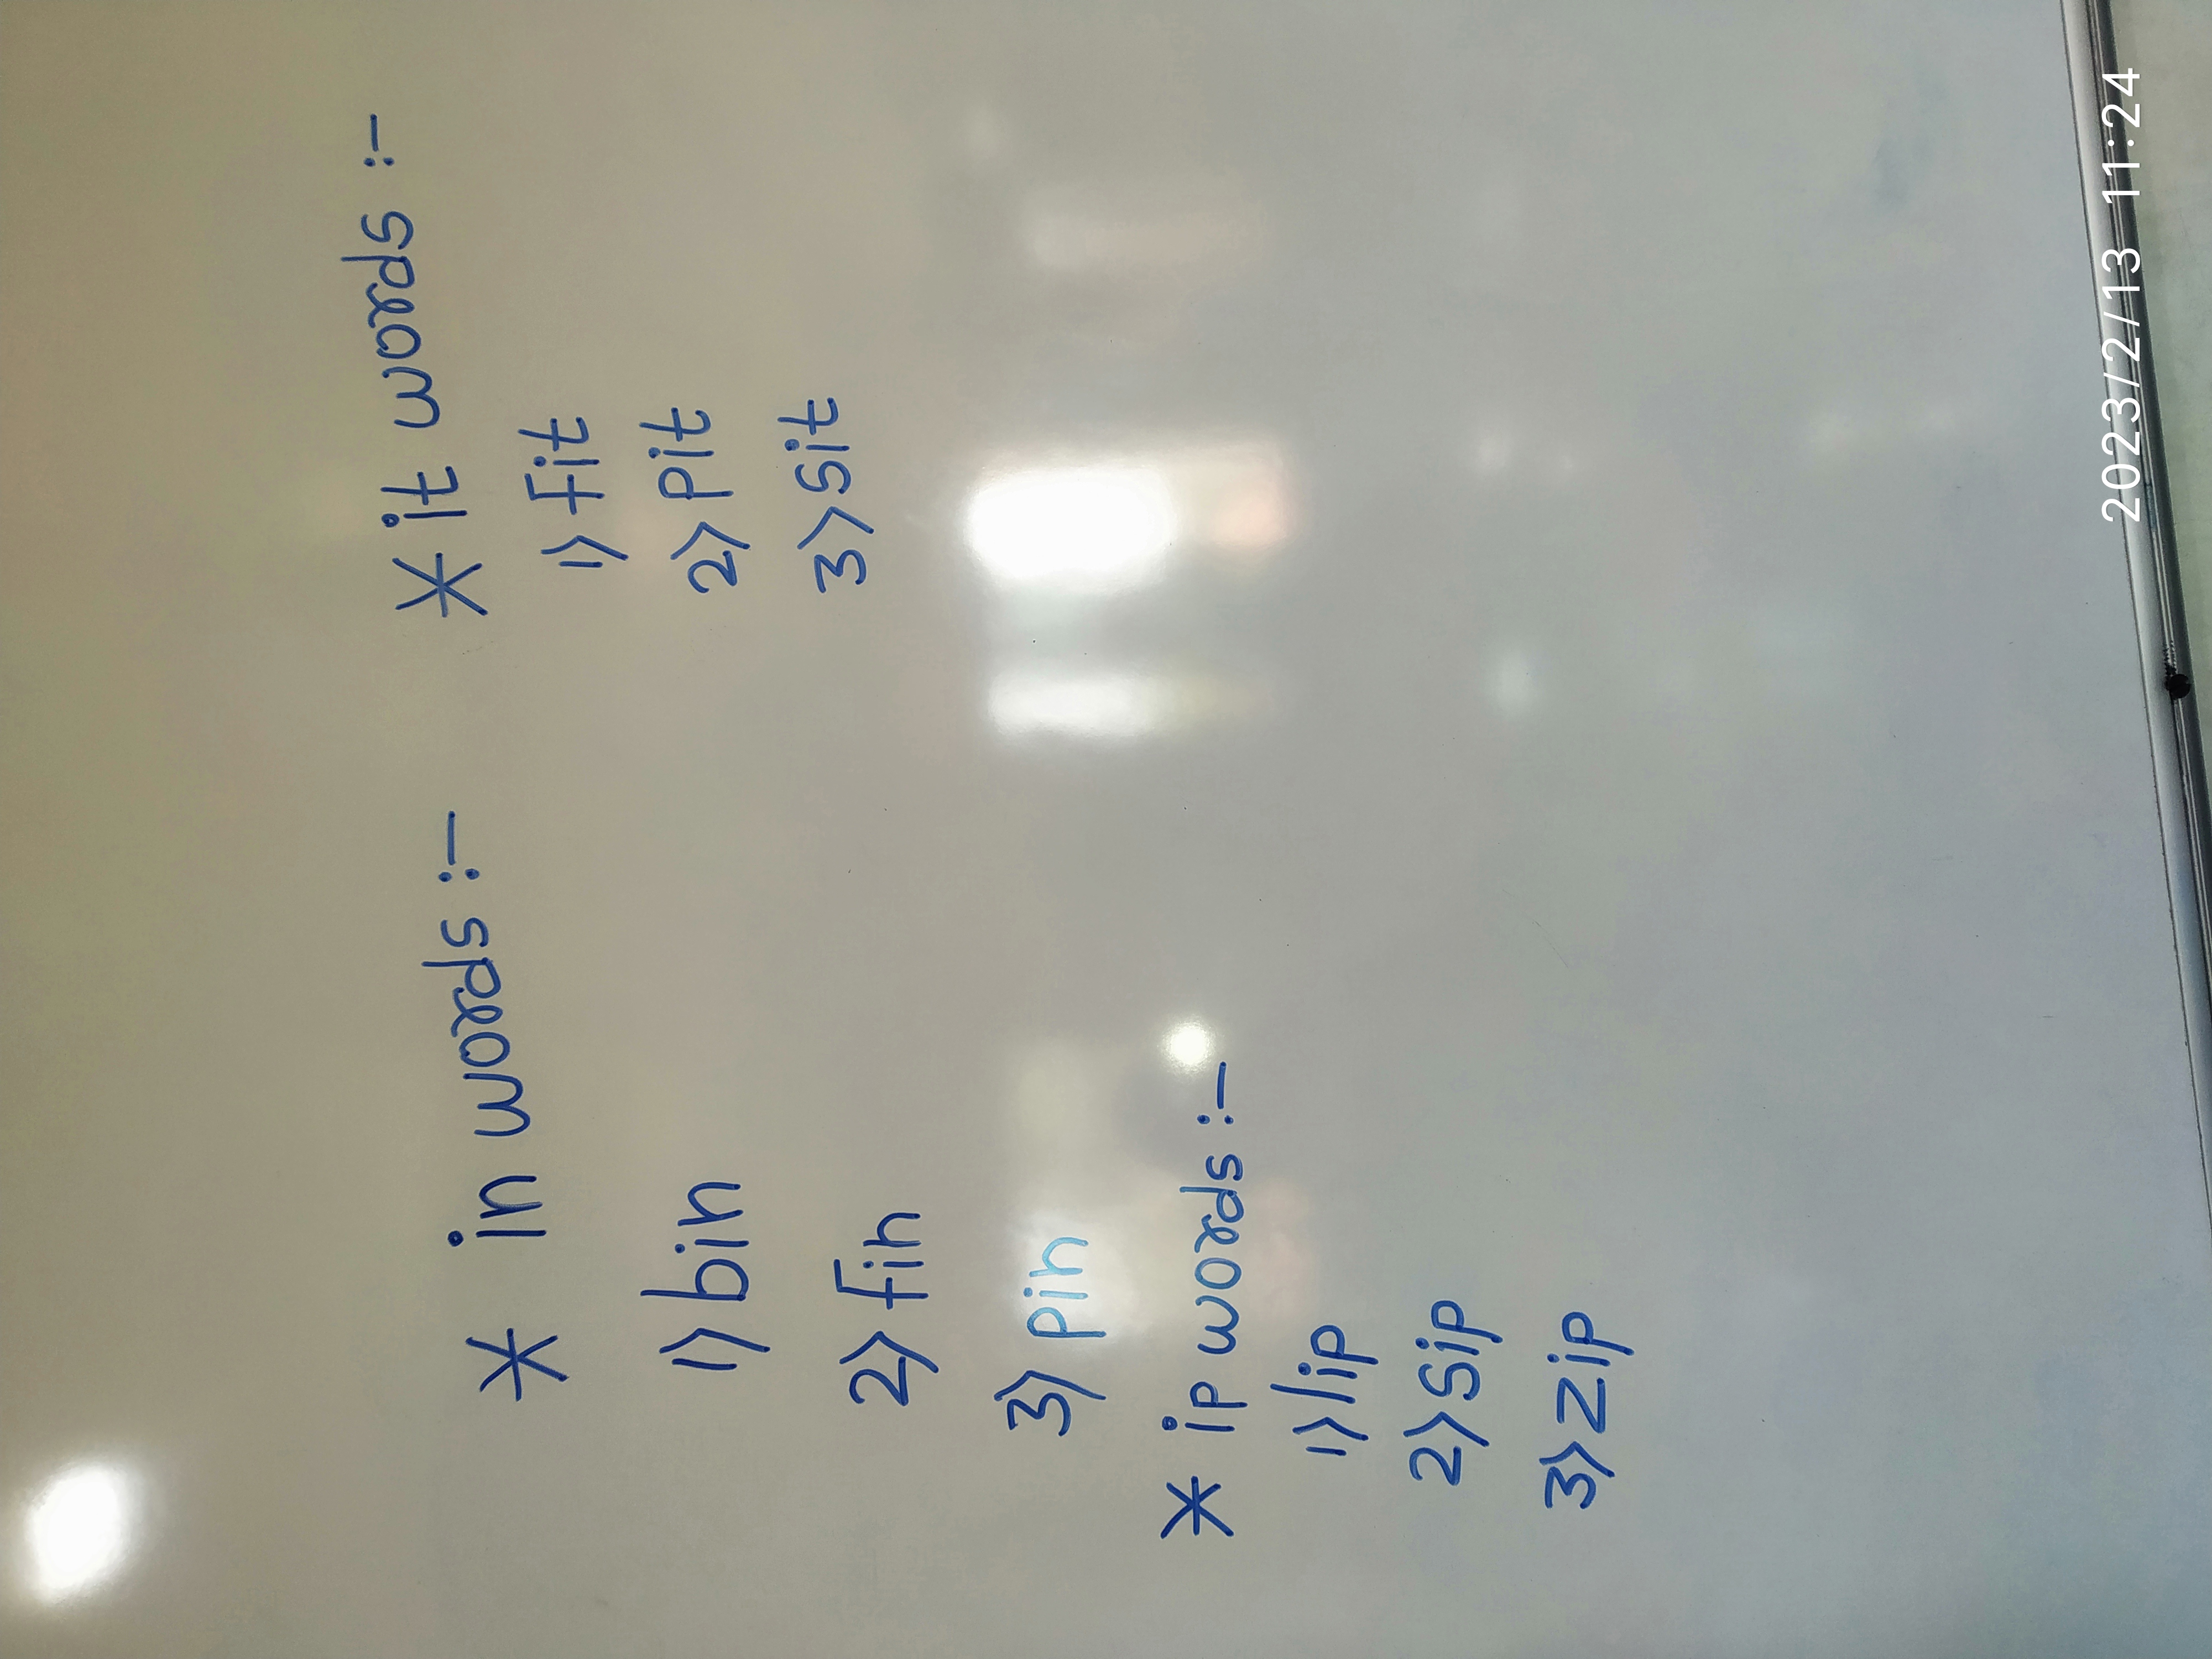 * in words :-
1) bin
2) fin
3) pin
* ip words :-
1) lip
2) sip
3) zip
* it words :-
1) fit
2) pit
3) sit
2023/2/13 11:24